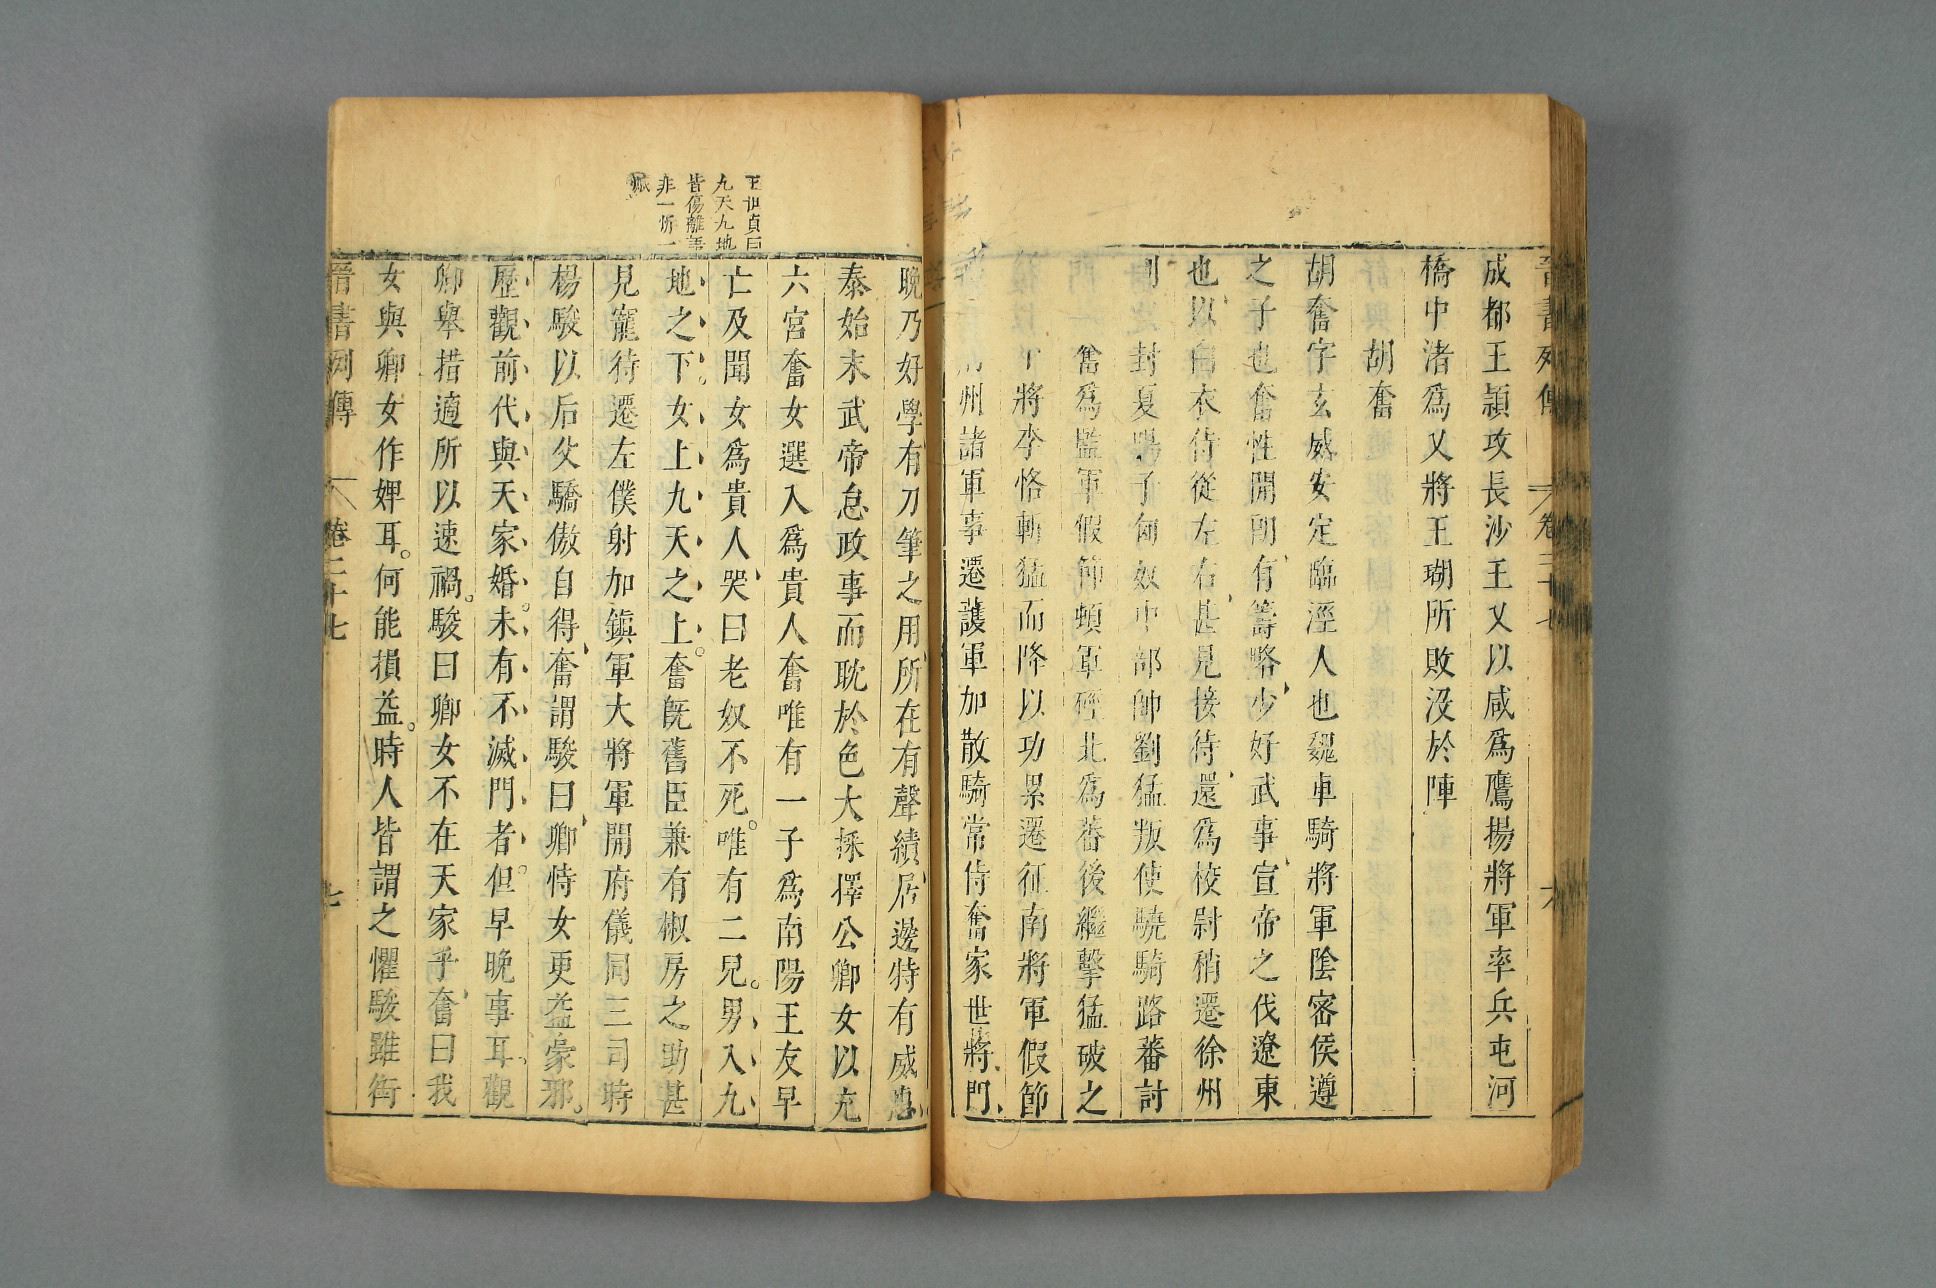 晉書列傳 卷二十七 六
成都王頴攻長沙王乂以咸爲鷹揚將軍率兵屯河
橋中渚爲乂將王瑚所敗沒於陣
胡奮
胡奮字玄威安定臨涇人也魏車騎將軍陰密侯遵
之子也奮性開朗有籌略少好武事宣帝之伐遼東
也以白衣侍從左右甚見接待還爲校尉稍遷徐州
刺封夏陽子匈奴中部帥劉猛叛使驍騎路蕃討
奮爲監軍假節頓軍硜北爲蕃後繼擊猛破之
下將李恪斬猛而降以功累遷征南將軍假節
州諸軍事遷護軍加散騎常侍奮家世將門
晚乃好學有刀筆之用所在有聲績居邊特有威惠
泰始末武帝怠政事而耽於色大採擇公卿女以充
六宮奮女選入爲貴人奮唯有一子爲南陽王友早
亡及聞女爲貴人哭曰老奴不死唯有二兒男入九
地之下女上九天之上奮旣舊臣兼有椒房之助甚
見寵待遷左僕射加鎭軍大將軍開府儀同三司時
楊駿以后父驕傲自得奮謂駿曰卿恃女更益豪邪
歷觀前代與天家婚未有不滅門者但早晚事耳觀
卿舉措適所以速禍駿曰卿女不在天家乎奮曰我
女與卿女作婢耳何能損益時人皆謂之懼駿雖銜
晉書列傳 卷二十七 七
王世貞曰
九天九地
皆傷離語
非一忻一
戚